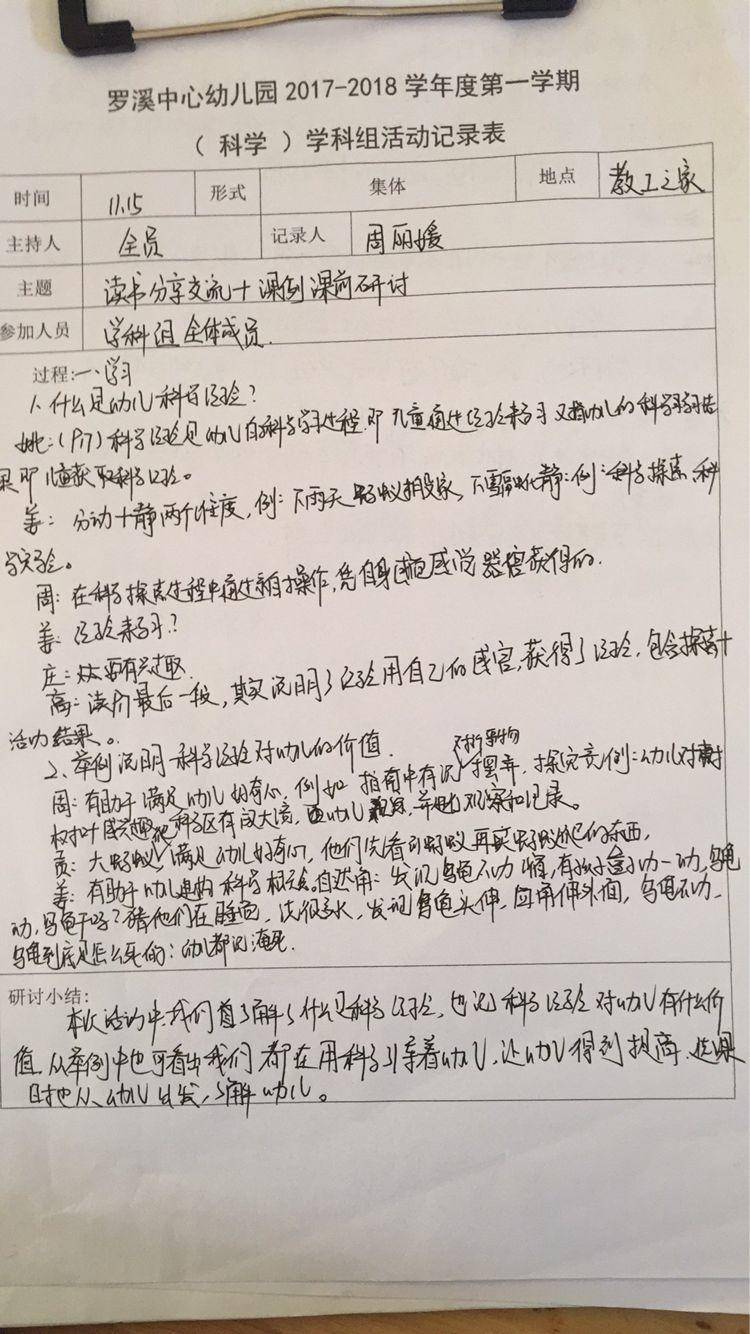 罗溪中心幼儿园 2017-2018 学年度第一学期
（ 科学 ）学科组活动记录表
时间 11.15 形式 集体 地点 教工之家
主持人 全员 记录人 周丽媛
主题 读书分享交流+课例课前研讨
参加人员 学科组全体成员.
过程:一、学习
1、什么是幼儿科学经验?
姚:(P17)科学经验是幼儿的科学学习过程.即儿童通过经验来学习又指幼儿的科学学习结
果即儿童获取科学经验。
姜: 分动+静两个维度,例:下雨天蚂蚁搬家,下雪融化静:例:科学探索、科
学实验。
周:在科学探索过程中通过亲自操作,凭自身感觉器官获得的.
姜:经验来学习?
庄: 要有兴趣.
高:读P7最后一段,其实说明了经验用自己的感官,获得了经验,包含探索+
活动结果。
2、举例说明科学经验对幼儿的价值.
周:有助于满足幼儿好奇心,例如指南中有说对新事物摆弄,探究 例:幼儿对
树叶感兴趣 科学区有放大镜, 幼儿观察,并 观察和记录。
员:大蚂蚁,满足幼儿好奇心,他们先看到蚂蚁再买蚂蚁吃的东西,
姜:有助于幼儿建构科学概念.自然角:发现乌龟不动了,有孩子拿了动一动,乌龟
动,乌龟干吗?猜他们在睡觉,没很多水,发现乌龟头伸,四角伸外面,乌龟不动.
乌龟到底是怎么死的:幼儿都说淹死.
研讨小结:
本次活动中我们首了解了什么是科学经验,也说科学经验对幼儿有什么价
值.从举例中也可看出我们都在用科学引导着幼儿,让幼儿得到提高.上课
时也从幼儿出发,了解幼儿。